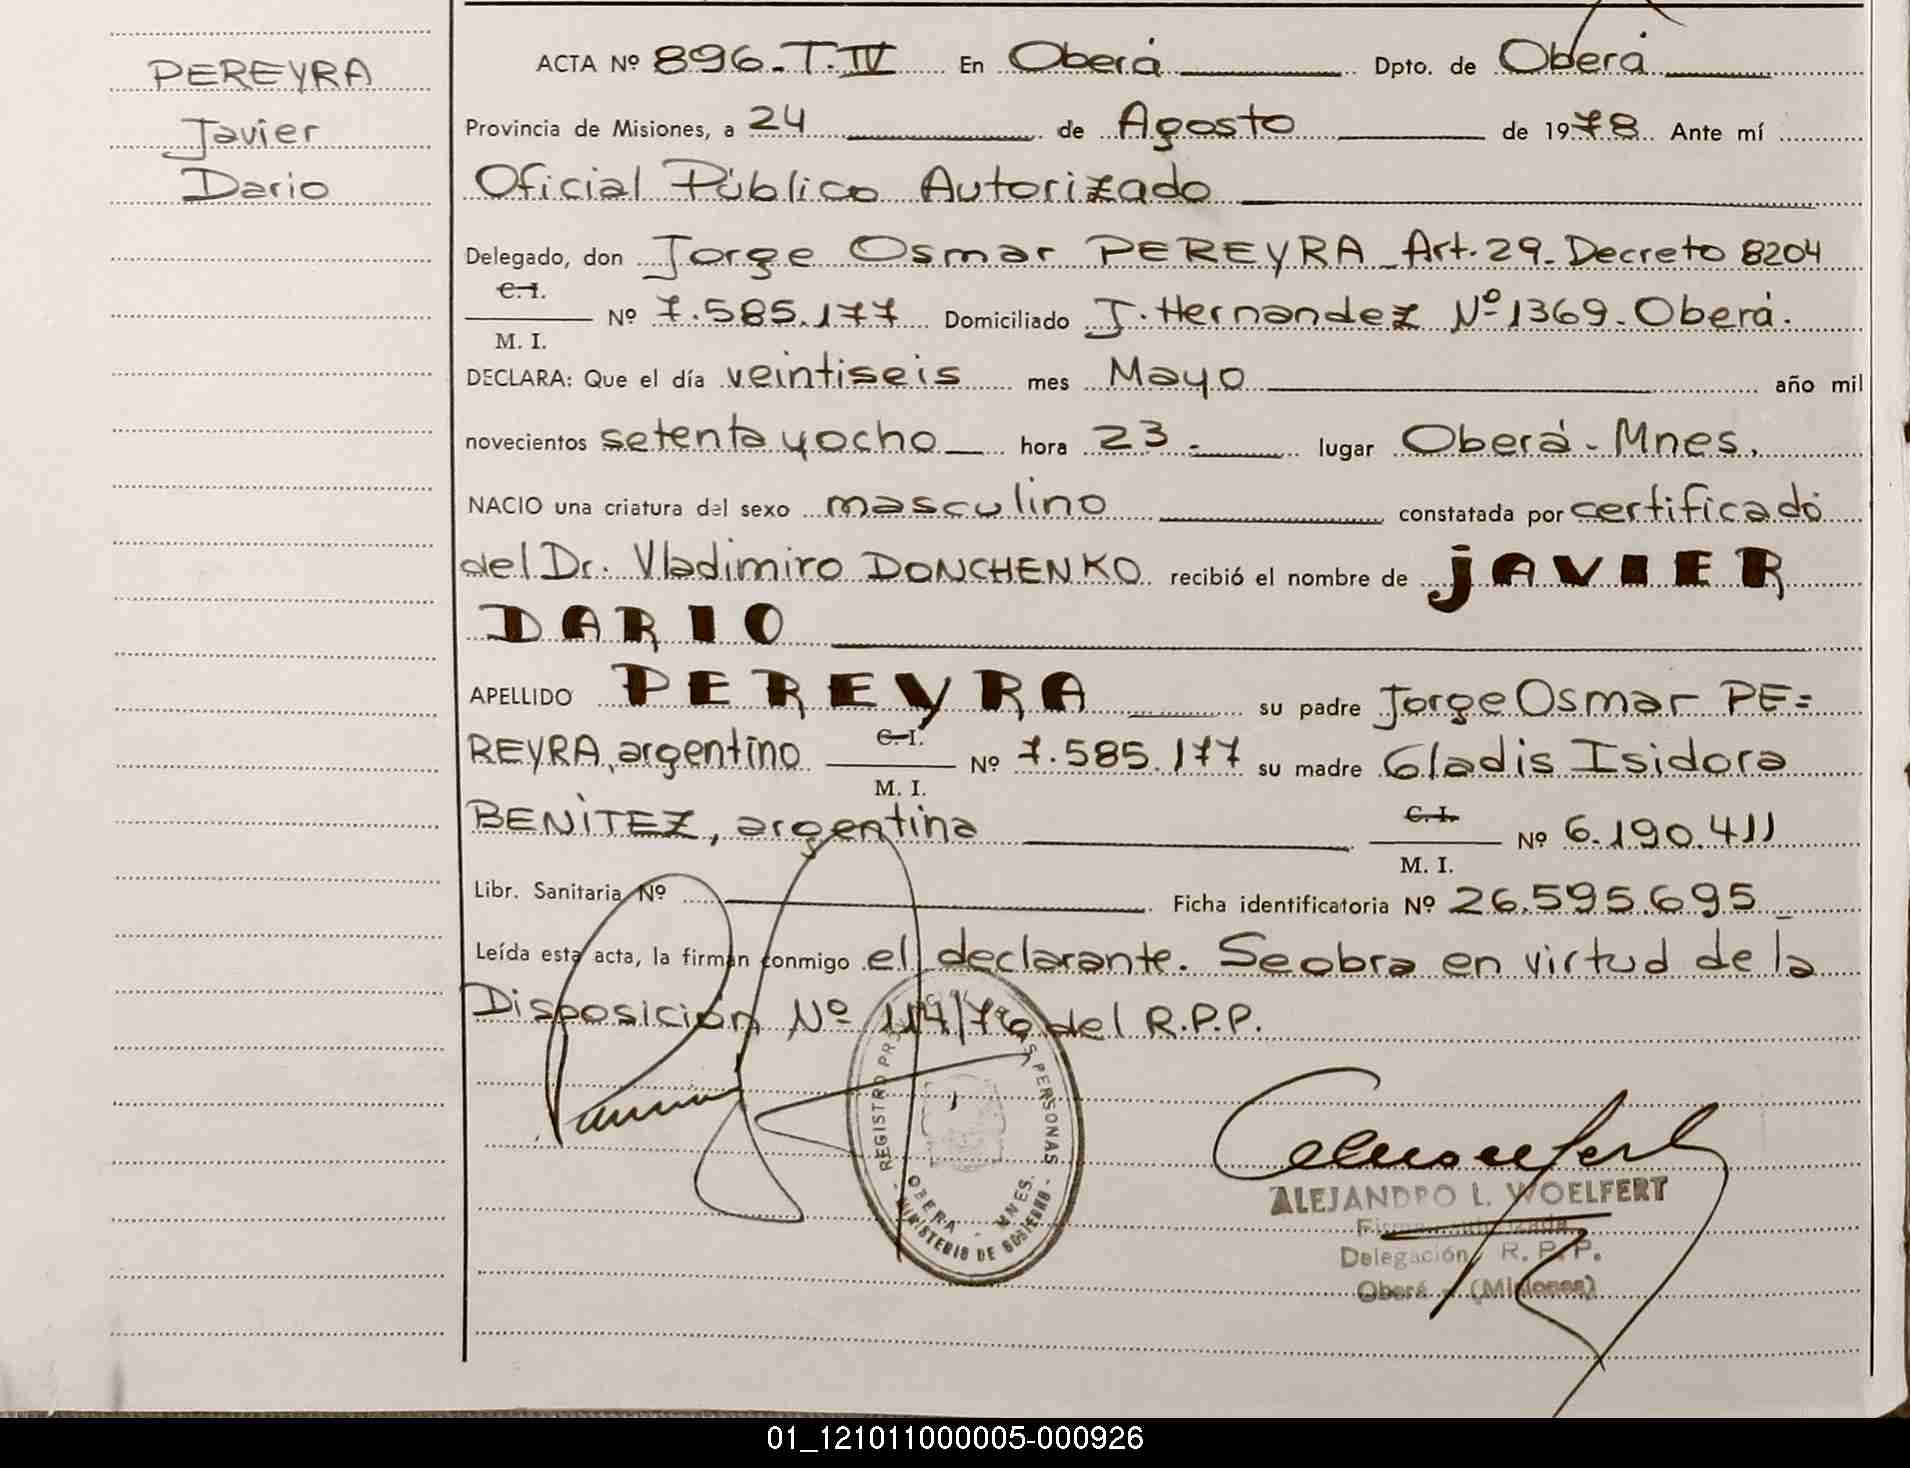 PEREYRA
Javier
Dario
ACTA Nº 896-T.IV En Oberá Dpto. de Oberá
Provincia de Misiones, a 24 de Agosto de 1978 Ante mí
Oficial Público Autorizado
Delegado, don Jorge Osmar PEREYRA Art.29-Decreto 8204
C.I.
M. I.
Nº 7.585.177 Domiciliado J. Hernandez Nº 1369-Oberá.
DECLARA: Que el día veintiseis mes Mayo año mil
novecientos setenta y ocho hora 23.- lugar Oberá-Mnes.
NACIO una criatura del sexo masculino constatada por certificado
del Dr. Vladimiro DONCHENKO recibió el nombre de JAVIER
DARIO
APELLIDO PEREYRA su padre Jorge Osmar PE=
REYRA, argentino C.I. M. I. Nº 7.585.177 su madre Gladis Isidora
BENITEZ, argentina C.I. M. I. Nº 6.190.411
Libr. Sanitaria Nº Ficha identificatoria Nº 26.595.695
Leída esta acta, la firman conmigo el declarante. Se obra en virtud de la
Disposición Nº 114/76 del R.P.P.
REGISTRO PERSONAS
OBERA - MNES.
- MINISTERIO DE GOBIERNO -
ALEJANDRO L. WOELFERT
Firma autorizada
Delegación R. P. P.
Oberá - (Misiones)
01_121011000005-000926